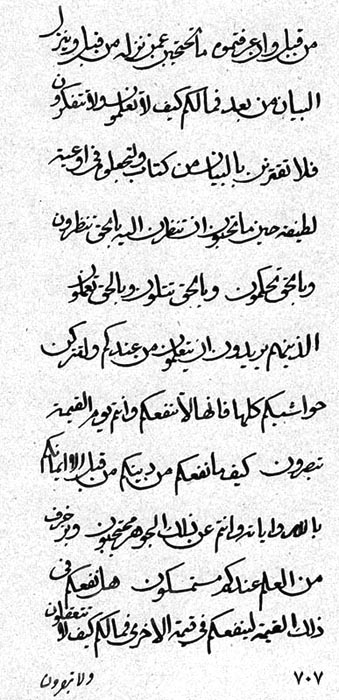 من قبل وان عرفتموه ما تحتجبن عمن نزله من قبل وينزل
البيان من بعد فما لكم كيف لا تعلمون ولا تتفكرون
فلا تقترنن بالبيان من كتاب ولتجعلوه في اوعية
لطيفة حين ما تحبون ان تنظرن اليه بالحق تنظرون
وبالحق تحكمون وبالحق تتلون وبالحق تعملون
الذينهم يريدون ان يتعلمون من عندكم ولتتركن
حواشيكم كلها فانها لا تنفعكم وانتم يوم القيمة
تبصرون كيف ما نفعكم من دينكم من قبل الا ايمانكم
بالله واياته وانتم عن ذلك الجوهر محتجبون وبزخرف
من العلم عندكم مستمسكون هل نفعكم في
ذلك القيمة لينفعكم في قيمة الاخرى فما لكم كيف لا تتعقلون
ولا تبصرون
٧٠٧